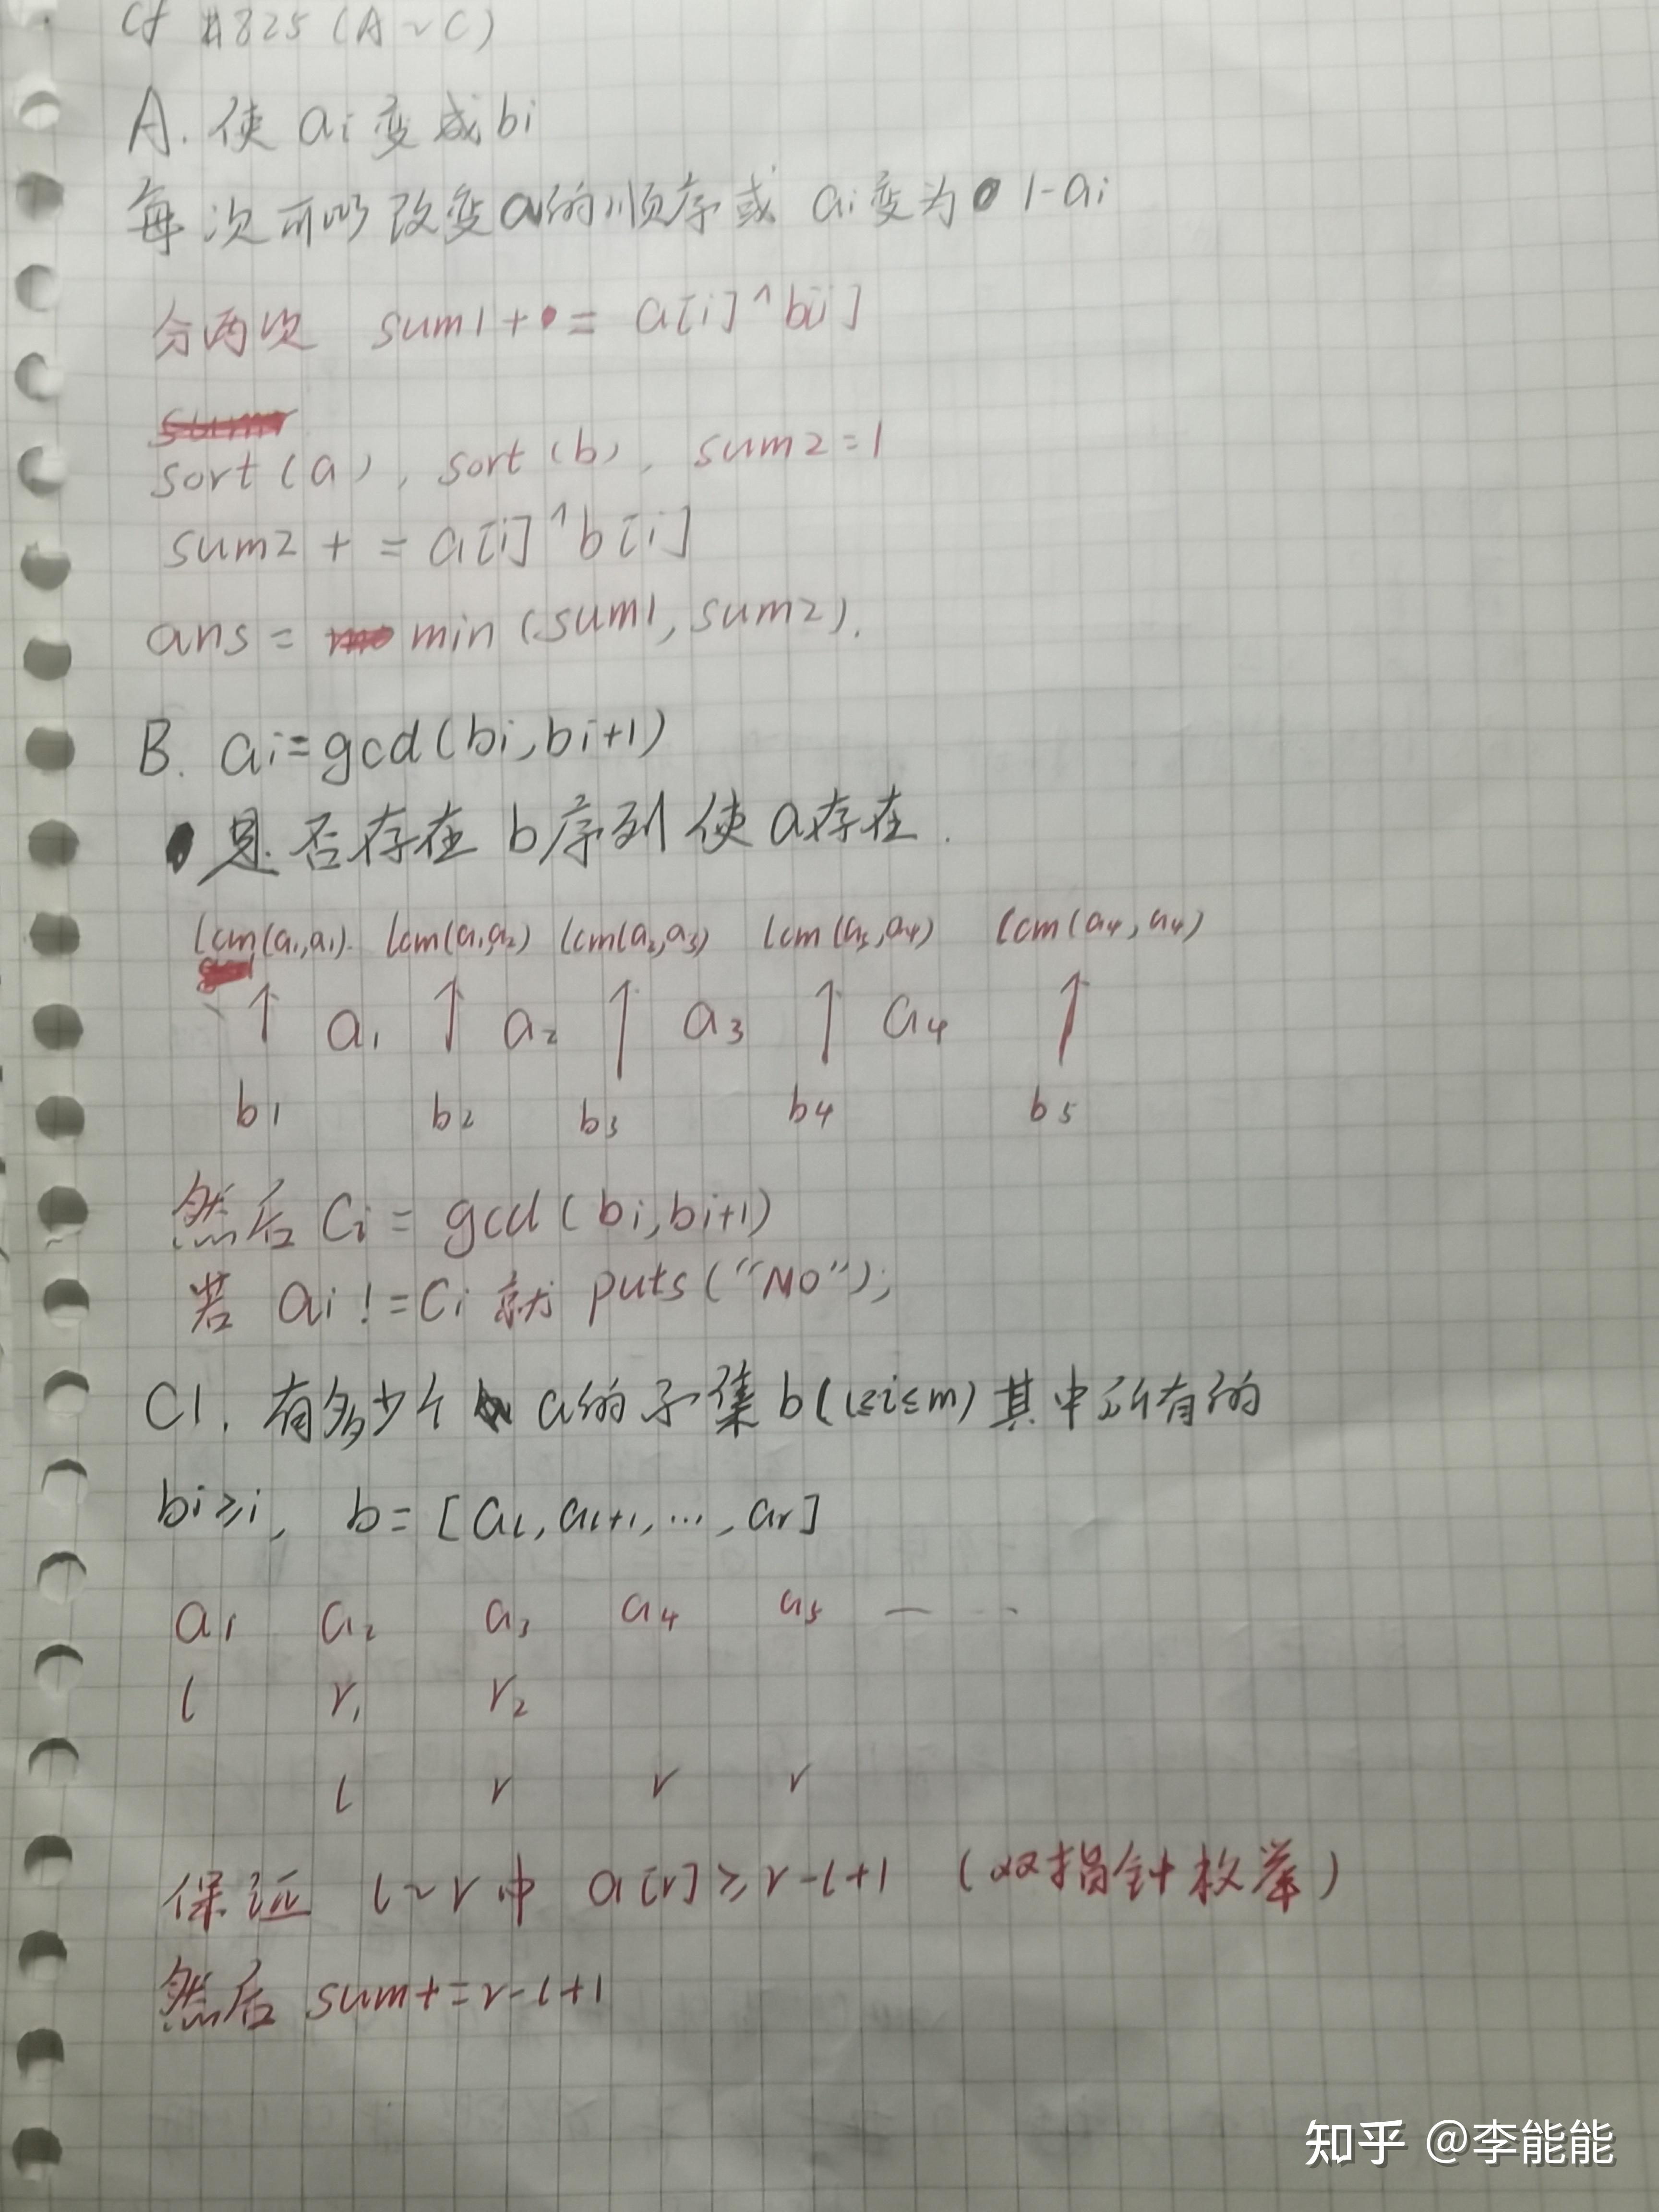 cf #825 (A~C)
A. 使 ai 变成 bi
每次可以改变a的顺序或 ai变为 1-ai
分两次 sum1 += a[i]^b[i]
sort(a), sort(b), sum2=1
sum2 += a[i]^b[i]
ans = min(sum1, sum2).
B. ai=gcd(bi,bi+1)
是否存在b序列使a存在.
lcm(a1,a1). lcm(a1,a2) lcm(a2,a3) lcm(a3,a4) lcm(a4,a4)
↑ a1 ↑ a2 ↑ a3 ↑ a4 ↑
b1 b2 b3 b4 b5
然后 Ci = gcd(bi,bi+1)
若 ai != Ci 就 puts("NO");
C1. 有多少个 a的子集 b(1≤i≤m) 其中所有的
bi≥i, b=[al, al+1, ..., ar]
a1 a2 a3 a4 a5 — - -
l r1 r2
l r r r
保证 l~r中 a[r]≥r-l+1 (双指针枚举)
然后 sum+=r-l+1
知乎 @李能能